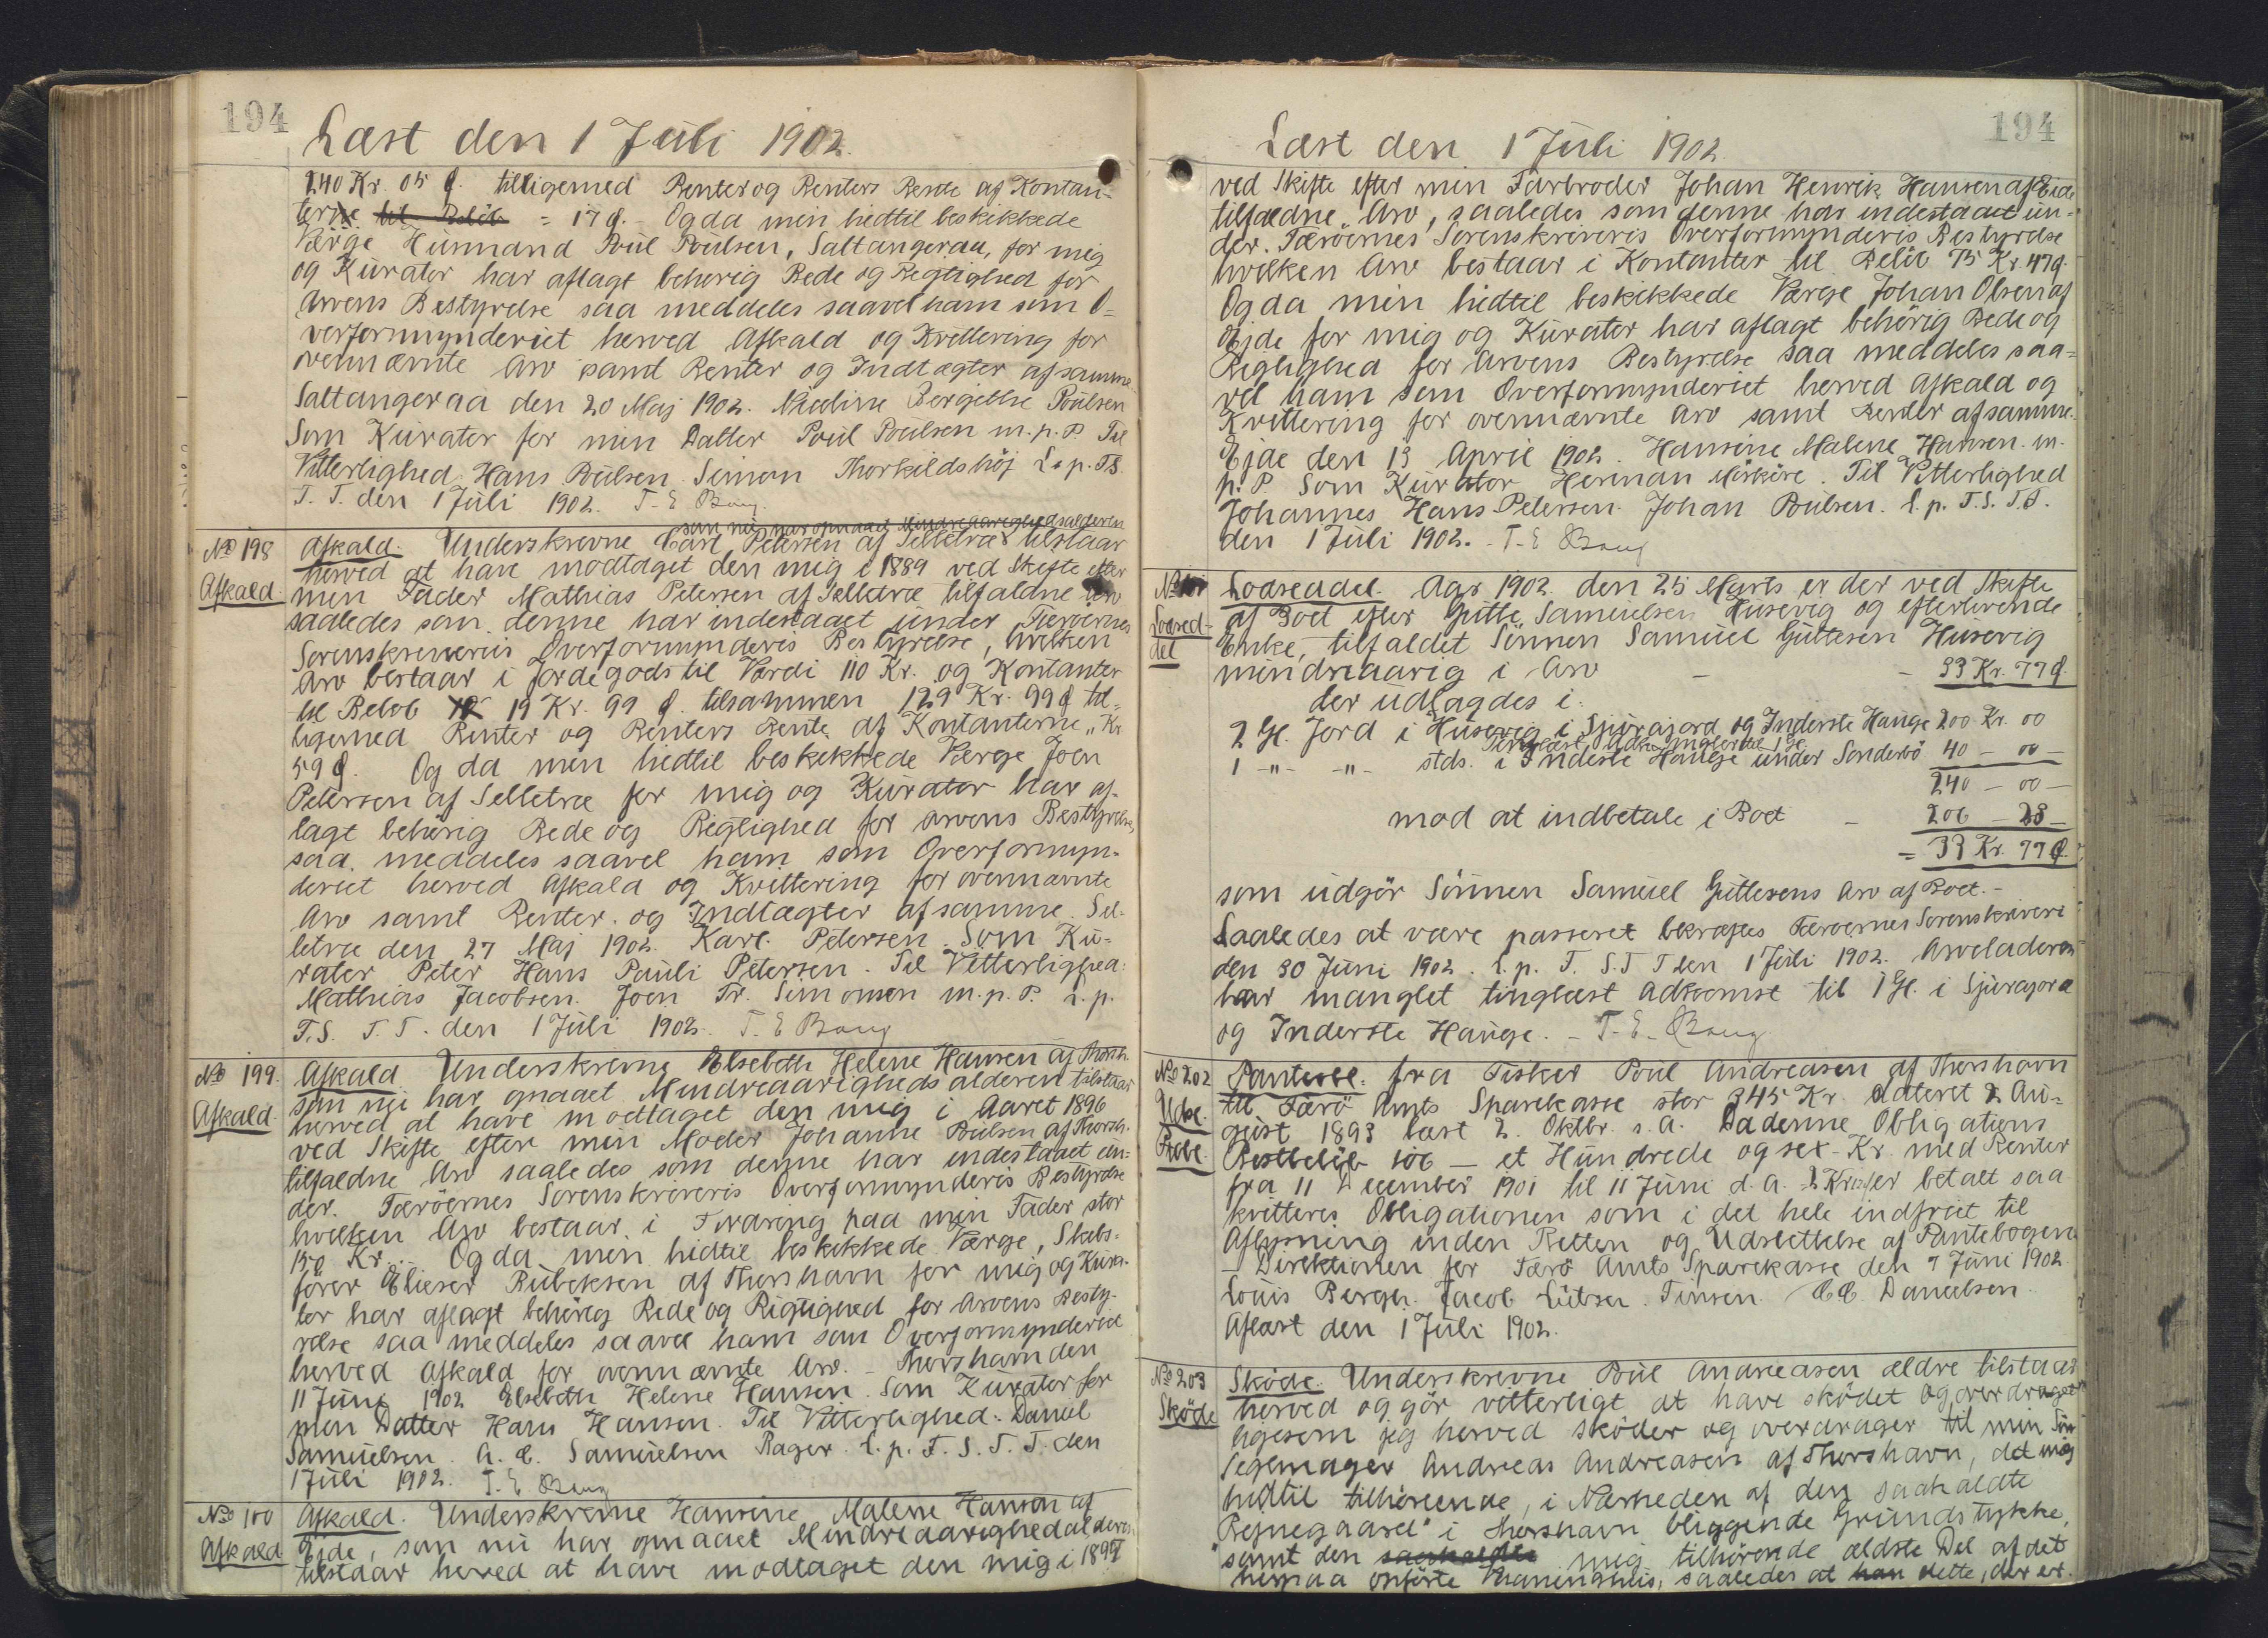 194
Læst den 1 Juli 1902.
240 Kr. 05 Ø. tilligemed Renter og Renters Rente af Kontan-
terne til Beløb = 17 Ø. - Og da min hidtil beskikkede
Værge Husmand Poul Poulsen, Saltangeraa, for mig
og Kurator har aflagt behørig Rede og Regtighed for
Arvens Bestyrelse saa meddeles saavel ham som O-
verformynderiet herved Afkald og Kvittering for
ovennævnte Arv samt Renter og Indtægter af samme.
Saltangeraa den 20 Maj 1902. Nicoline Bergithe Poulsen
Som Kurator for min Datter Poul Poulsen m.p.P Til
Vitterlighed. Hans Poulsen. Simon Thorkildshöj L.p.T.S.
T.T. den 1 Juli 1902. T. E Bang.
som nu har opnaaet Mindreaarighedsalderen
No 198 Afkald. Underskrevne Carl Petersen af Selletræ tilstaar
herved at have modtaget den mig i 1889 ved Skifte efter
Afkald. min Fader Mathias Petersen af Selletræ tilfaldne Arv
saaledes som denne har indestaaet under Færøernes
Sorenskriveris Overformynderis Bestyrelse, hvilken
Arv bestaar i Jordegods til Værdi 110 Kr. og Kontanter
til Beløb 19 Kr. 99 Ø. tilsammen 129 Kr. 99 Ø til-
ligemed Renter og Renters Rente af Kontanterne „ Kr
59 Ø. Og da min hidtil beskikkede Værge Joen
Petersen af Selletræ for mig og Kurator har af-
lagt behørig Rede og Regtighed for Arvens Bestyrelse,
saa meddeles saavel ham som Overformyn-
deriet herved Afkald og Kvittering for ovennævnte
Arv samt Renter og Indtægter af samme. Sel-
letræ den 27 Maj 1902. Karl Petersen. Som Ku-
rator Peter Hans Pauli Petersen. Til Vitterlighed:
Mathias Jacobsen. Joen Fr. Simonsen m.p.P. L.p.
T.S. T.T. den 1 Juli 1902. T. E Bang
No 199. Afkald Underskrevne Elsebeth Helene Hansen af Thorsh.
som nu har opnaaet Mindreaarighedsalderen tilstaar
Afkald. herved at have modtaget den mig i Aaret 1896
ved Skifte efter min Moder Johanne Poulsen af Thorsh.
tilfaldne Arv saaledes som denne har indestaaet un-
der Færöernes Sorenskriveris Overformynderis Bestyrelse
hvilken Arv bestaar i Fordring paa min Fader stor
150 Kr. Og da min hidtil beskikkede Værge, Skibs-
förer Elieser Rubeksen af Thorshavn for mig og Kura-
tor har aflagt behörig Rede og Rigtighed for Arvens Besty-
relse saa meddeles saavel ham som Overformynderiet
herved Afkald for ovennævnte Arv. - Thorshavn den
11 Juni 1902 Elsebeth Helene Hansen. Som Kurator for
min Datter Hans Hansen. Til Vitterlighed: Daniel
Samuelsen. A. C. Samuelsen Bager. L.p. T. S. T. T. den
1 Juli 1902. T. E Bang
No 100 Afkald. Underskrevne Hansine Malene Hansen af
Afkald Ejde, som nu har opnaaet Mindreaarighedalderen
tilstaar herved at have modtaget den mig i 1897
194
Læst den 1 Juli 1902.
ved Skifte efter min Farbroder Johan Henrik Hansen af Eide
tilfaldne Arv, saaledes som denne har indestaaet un-
der Færöernes Sorenskriveris Overformynderis Bestyrelse
hvilken Arv bestaar i Kontanter til Beløb 75 Kr. 47 Ø.
Og da min hidtil beskikkede Værge Johan Olsen af
Ejde for mig og Kurator har aflagt behörig Rede og
Regtighed for Arvens Bestyrelse saa meddeles saa-
vel ham som Overformynderiet herved Afkald og
Kvittering for ovennævnte Arv samt Renter af samme.
Ejde den 13 April 1902. Hansine Malene Hansen. m.
p.P Som Kurator Herman Mörköre. Til Vitterlighed
Johannes Hans Petersen. Johan Poulsen. L.p. T.S. T.T.
den 1 Juli 1902. - T. E Bang
Lodseddel. Aar 1902 den 25 Marts er der ved Skifte
Lodsed- af Boet efter Gutte Samuelsen Husevig og efterlevende
del Enke, tilfaldet Sönnen Samuel Guttesen Husevig
mindreaarig i Arv - - 33 Kr. 77 Ø.
der udlagdes i:
2 Gl. Jord i Husevig i Sjúrajord og Inderste Hauge 200 Kr. 00
Tinglæst Adk. mangler til 1 Gl.
1 -"- -"- stds. i Inderste Hauge under Sonderbö 40 - 00 -
240 - 00 -
mod at indbetale i Boet - 206 - 23 -
= 33 Kr. 77 Ø.
som udgör Sönnen Samuel Guttesens Arv af Boet. -
Saaledes at være passeret bekræftes Færöernes Sorenskriveri
den 30 Juni 1902. L.p. T. S. T T den 1 Juli 1902. Arveladeren
har manglet tinglæst Adkomst til 1 Gl. i Sjurajord
og Inderste Hauge. - T. E. Bang
No 202 Panteobl. fra Fisker Poul Andreasen af Thorshavn
Udsl. til Færö Amts Sparekasse stor 345 Kr. dateret 2 Au-
gust 1893 læst 2. Oktbr. s.A. Da denne Obligations
Pobl. Restbelöb 106 - et Hundrede og sex - Kr. med Renter
fra 11 December 1901 til 11 Juni d.A. - 2 Kroner betalt saa
kvitteres Obligationen som i det hele indfriet til
Aflysning inden Retten og Udslettelse af Pantebogen
- Direktionen for Færö Amts Sparekasse den 7 Juni 1902
Louis Bergh. Jacob Lützen. Finsen. C.C. Danielsen
Aflæst den 1 Juli 1902.
No 203 Sköde. Underskrevne Poul Andreasen ældre tilstaar
Sköde herved og gör vitterligt at have sködet og overdraget
ligesom jeg herved sköder og overdrager til min Sön
Segemager Andreas Andreasen af Thorshavn, det mig
hidtil tilhörende, i Nærheden af den saakaldte
"Rejnegaard" i Thorshavn liggende Grundstykke,
samt den saakaldte mig tilhörende ældste Del af det
herpaa opförte Vaaningshuis, saaledes at han dette, der er